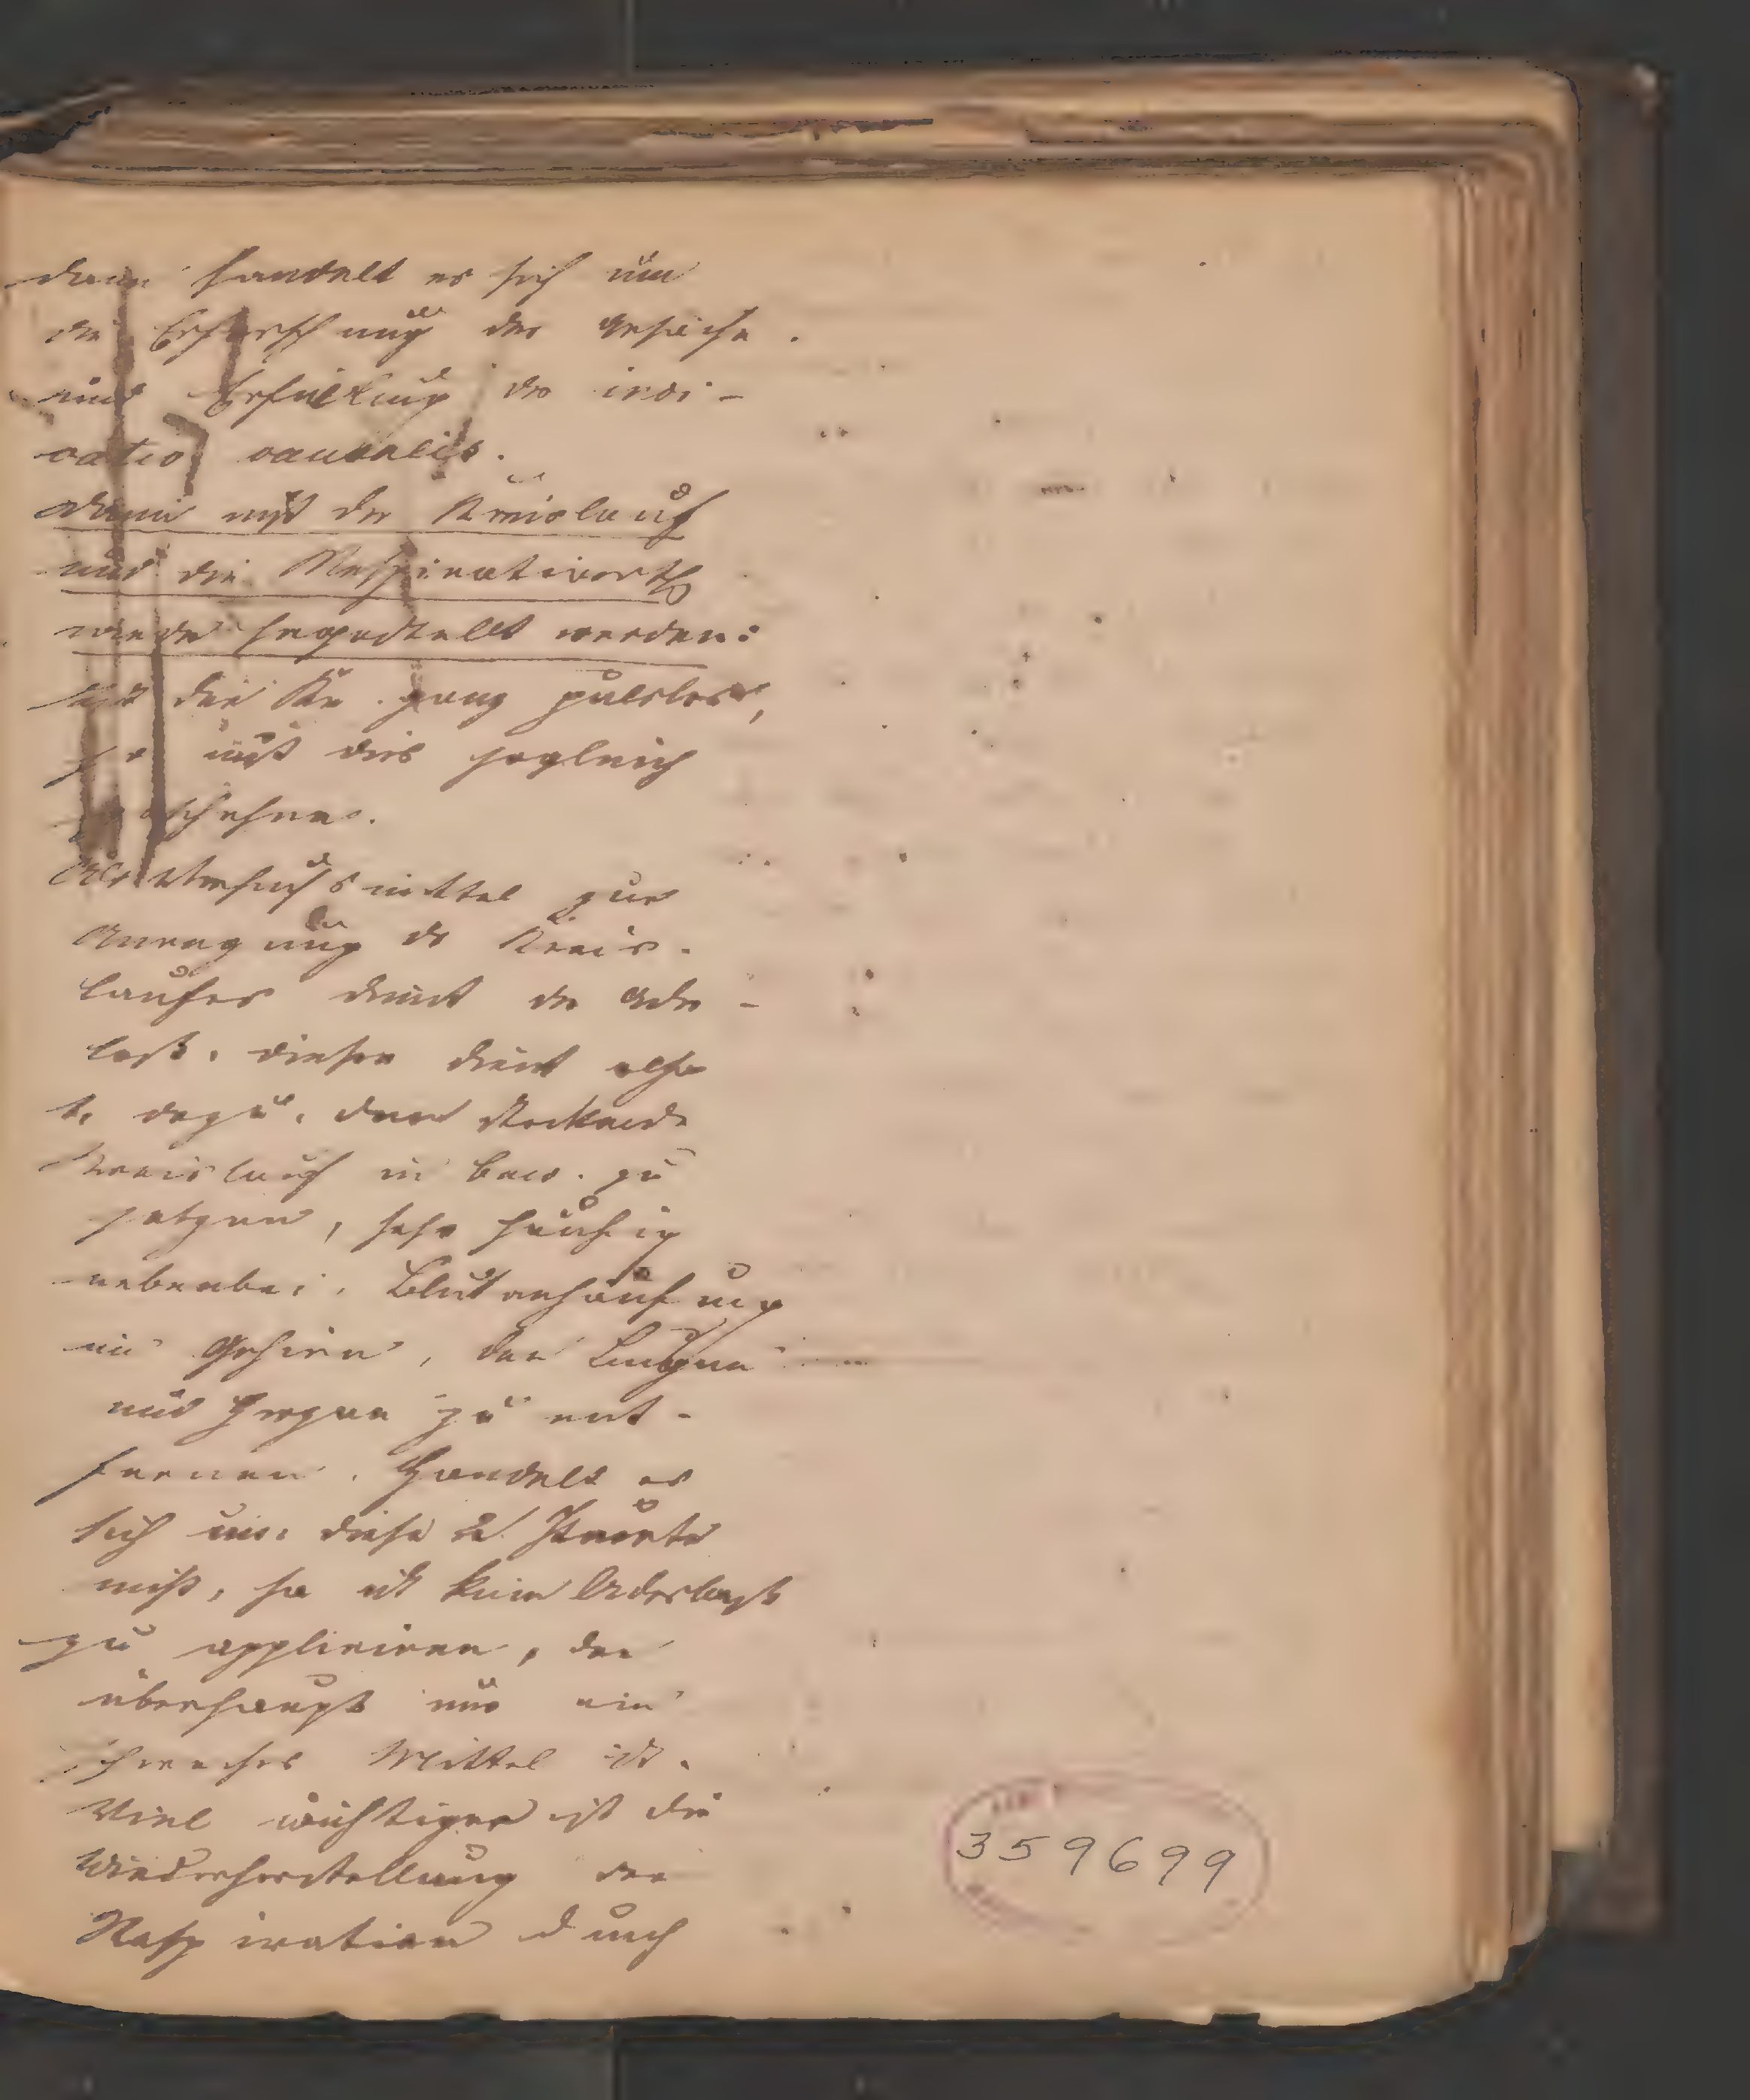 dann handelt es sich um
die Erforschung der Ursache
und Erfüllung der indi-
catio causalis.
dann muß der Kreislauf
und die Respiration
wieder hergestellt werden:
ist der Kr. ganz pulslos,
so muß dies sogleich
geschehen.
Als Versuchsmittel zur
Anregung des Kreis-
laufes dient der Ader-
laß. dieser dient also
1. dazu, den stockenden
Kreislauf in Bew. zu
setzen, sehr häufig
nebenbei, Blutanhäufung
im Gehirn, den Lungen
und Herzen zu ent-
fernen. Handelt es
sich um diese 2 Punkte
nicht, so ist kein Aderlaß
zu appliciren, der
überhaupt nur ein
schwaches Mittel ist.
Viel wichtiger ist die
Wiederherstellung der
Respiration durch
359699